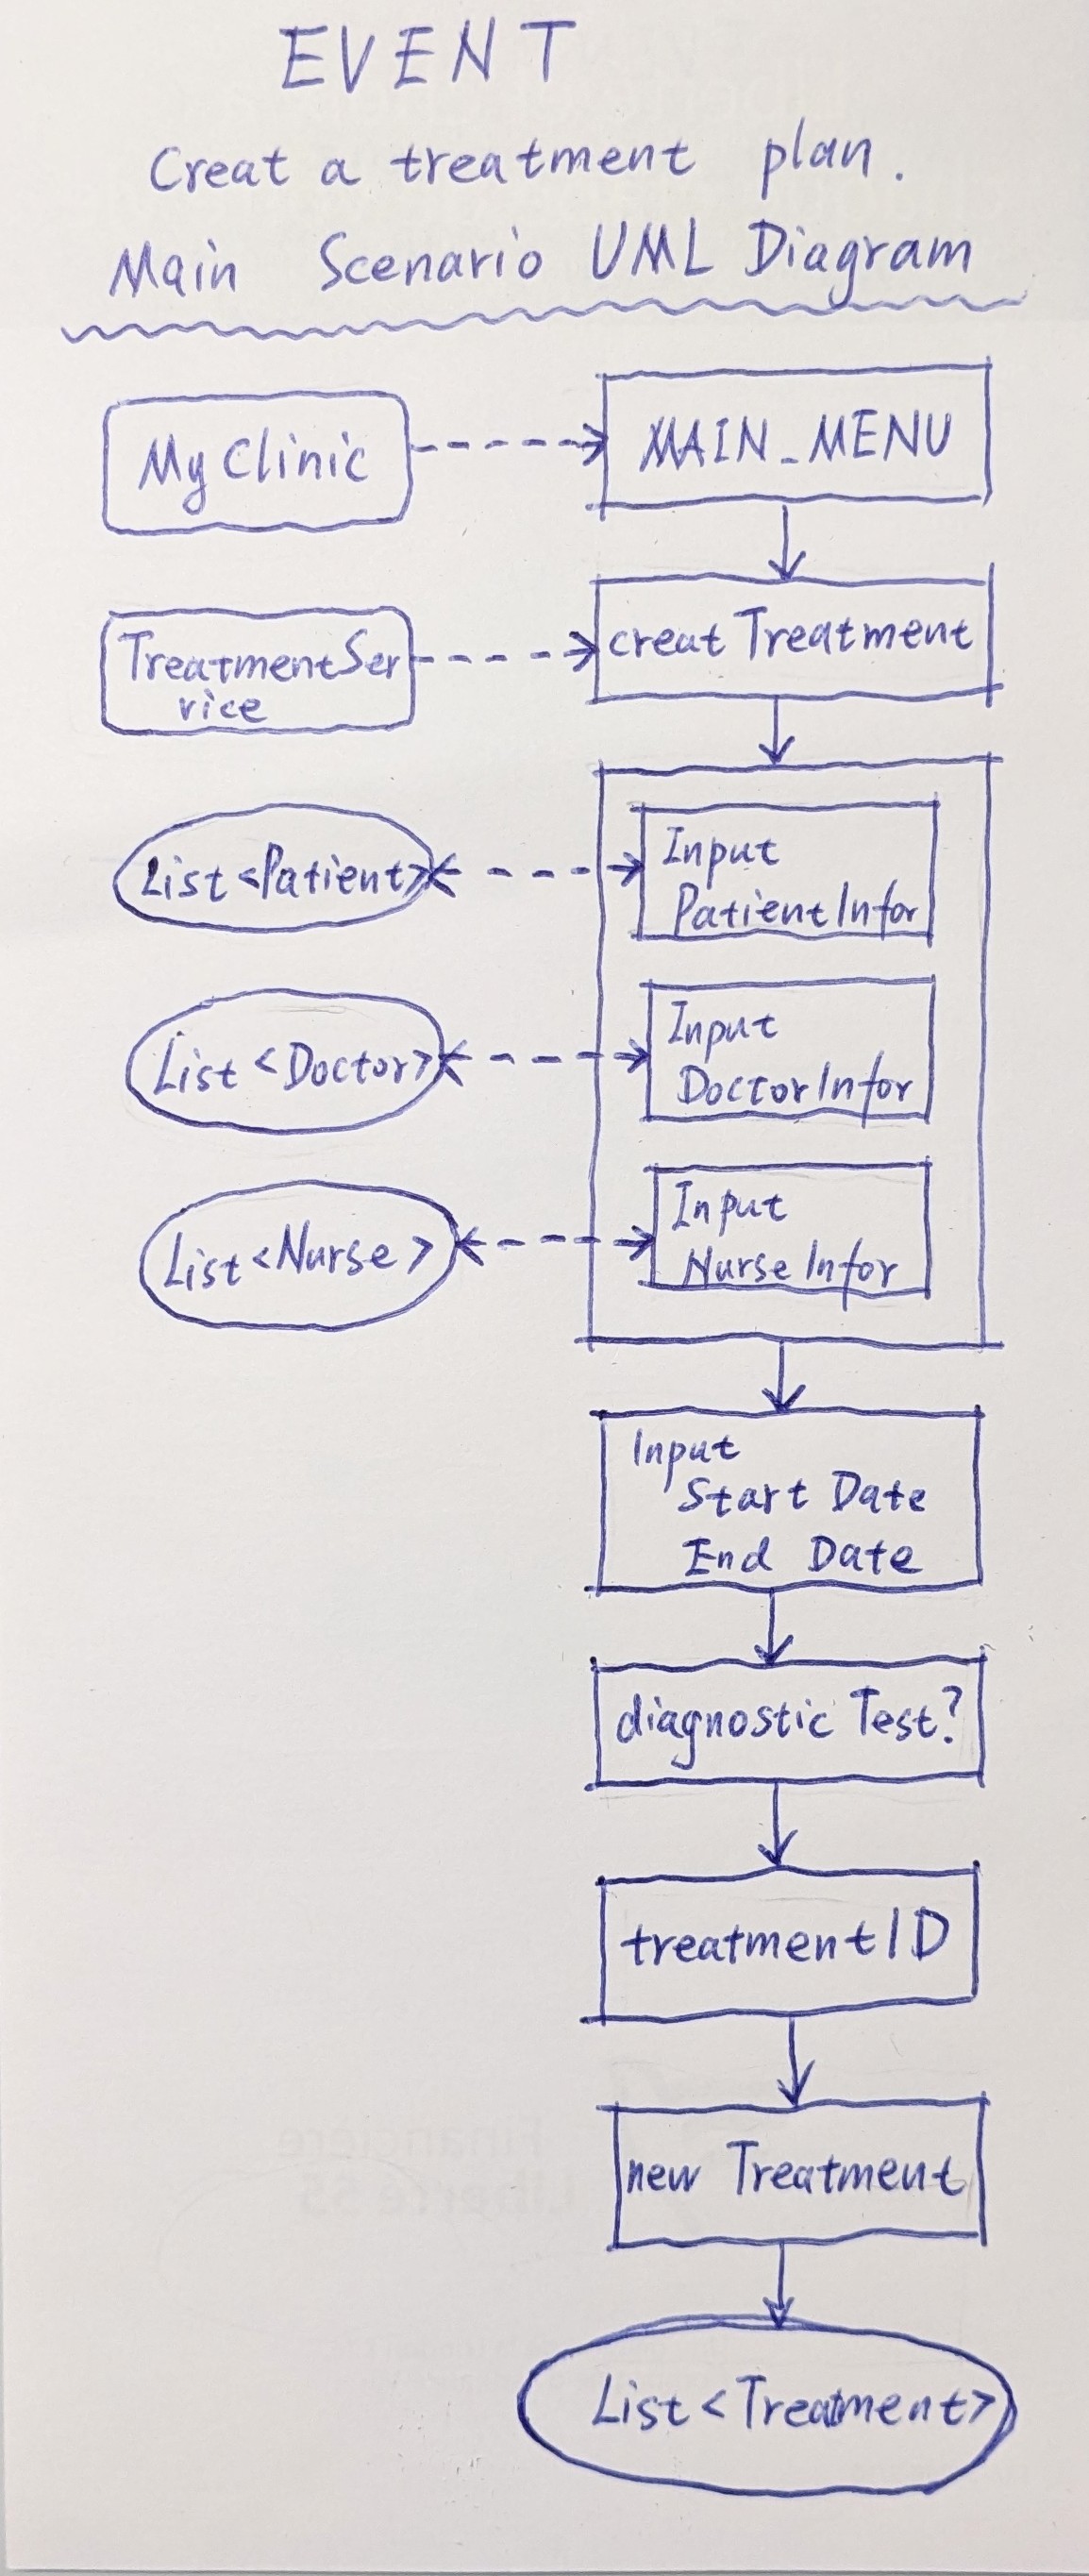 EVENT
Creat a treatment plan.
Main Scenario UML Diagram
MyClinic
MAIN_MENU
TreatmentSer
vice
creatTreatment
List<Patient>
Input
PatientInfor
List<Doctor>
Input
DoctorInfor
List<Nurse>
Input
NurseInfor
Input
Start Date
End Date
diagnostic Test?
treatmentID
new Treatment
Financière
Liberté 55
List<Treatment>